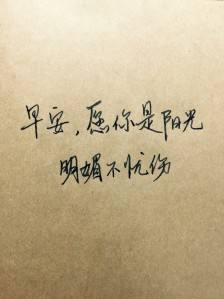 早安,愿你是阳光
明媚不忧伤